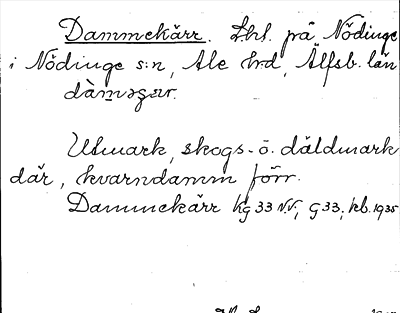 Dammekärr. Lht. på Nödinge
i Nödinge s:n, Ale hrd, Älfsb. län
Utmark, skogs- o. däldmark
där, kvarndamm förr.
Dammekärr Kg 33 N.V., G 33, kb. 1935